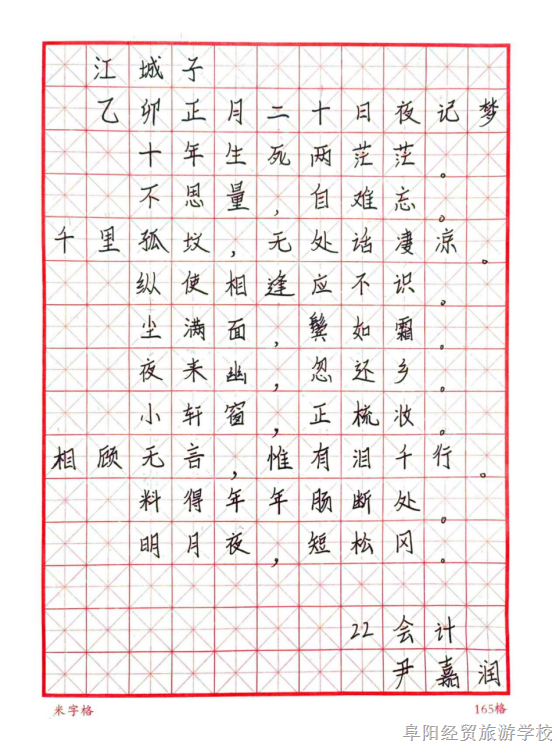 江城子
乙卯正月二十日夜记梦
十年生死两茫茫。
不思量,自难忘。
千里孤坟,无处话凄凉。
纵使相逢应不识。
尘满面,鬓如霜。
夜来幽,忽还乡。
小轩窗,正梳妆。
相顾无言,惟有泪千行。
料得年年肠断处。
明月夜,短松冈。
22会计
尹嘉润
米字格 165格
阜阳经贸旅游学校